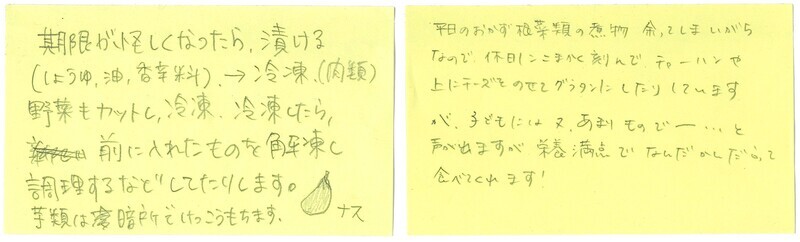 期限が怪しくなったら、漬ける
(しょうゆ,油,香辛料).→冷凍.(肉類)
野菜もカットし,冷凍.冷凍したら,
前に入れたものを解凍し
調理するなどしてたりします。
芋類は冷暗所でけっこうもちます.
ナス
平日のおかず根菜類の煮物 余ってしまいがち
なので、休日にこまかく刻んで、チャーハンや
上にチーズをのせてグラタンにしたりしています
が、子どもには又、あまりものでー…と
声が出ますが栄養満点でなんだかんだいって
食べてくれます!